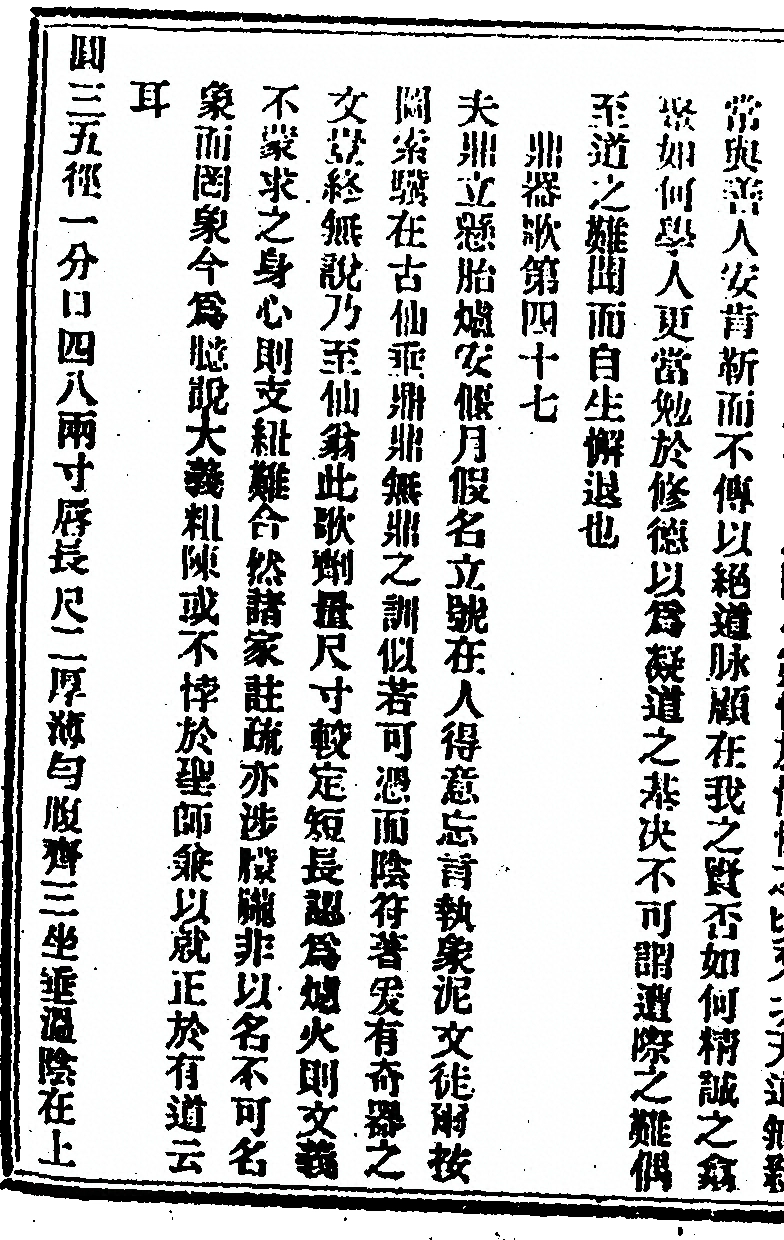 天道無親
常與善人安肯靳而不傳以絕道脉顧在我之賢否如何精誠之翕
聚如何學人更當勉於修德以為凝道之基决不可謂遭際之難偶
至道之難聞而自生懈退也
鼎器歌第四十七
夫鼎立懸胎爐安偃月假名立號在人得意忘言執象泥文徒爾按
圖索驥在古仙垂鼎鼎無鼎之訓似若可憑而陰符著爰有奇器之
文竟終無說乃至仙翁此歌劑量尺寸較定短長認為爐火則文義
不蒙求之身心則支紐難合然諸家註疏亦涉朦朧非以名不可名
象而罔象今爲臆説大義粗陳或不悖於聖師兼以就正於有道云
耳
圓三五徑一分口四八兩寸唇長尺二厚薄勻腹齊三坐垂溫陰在上